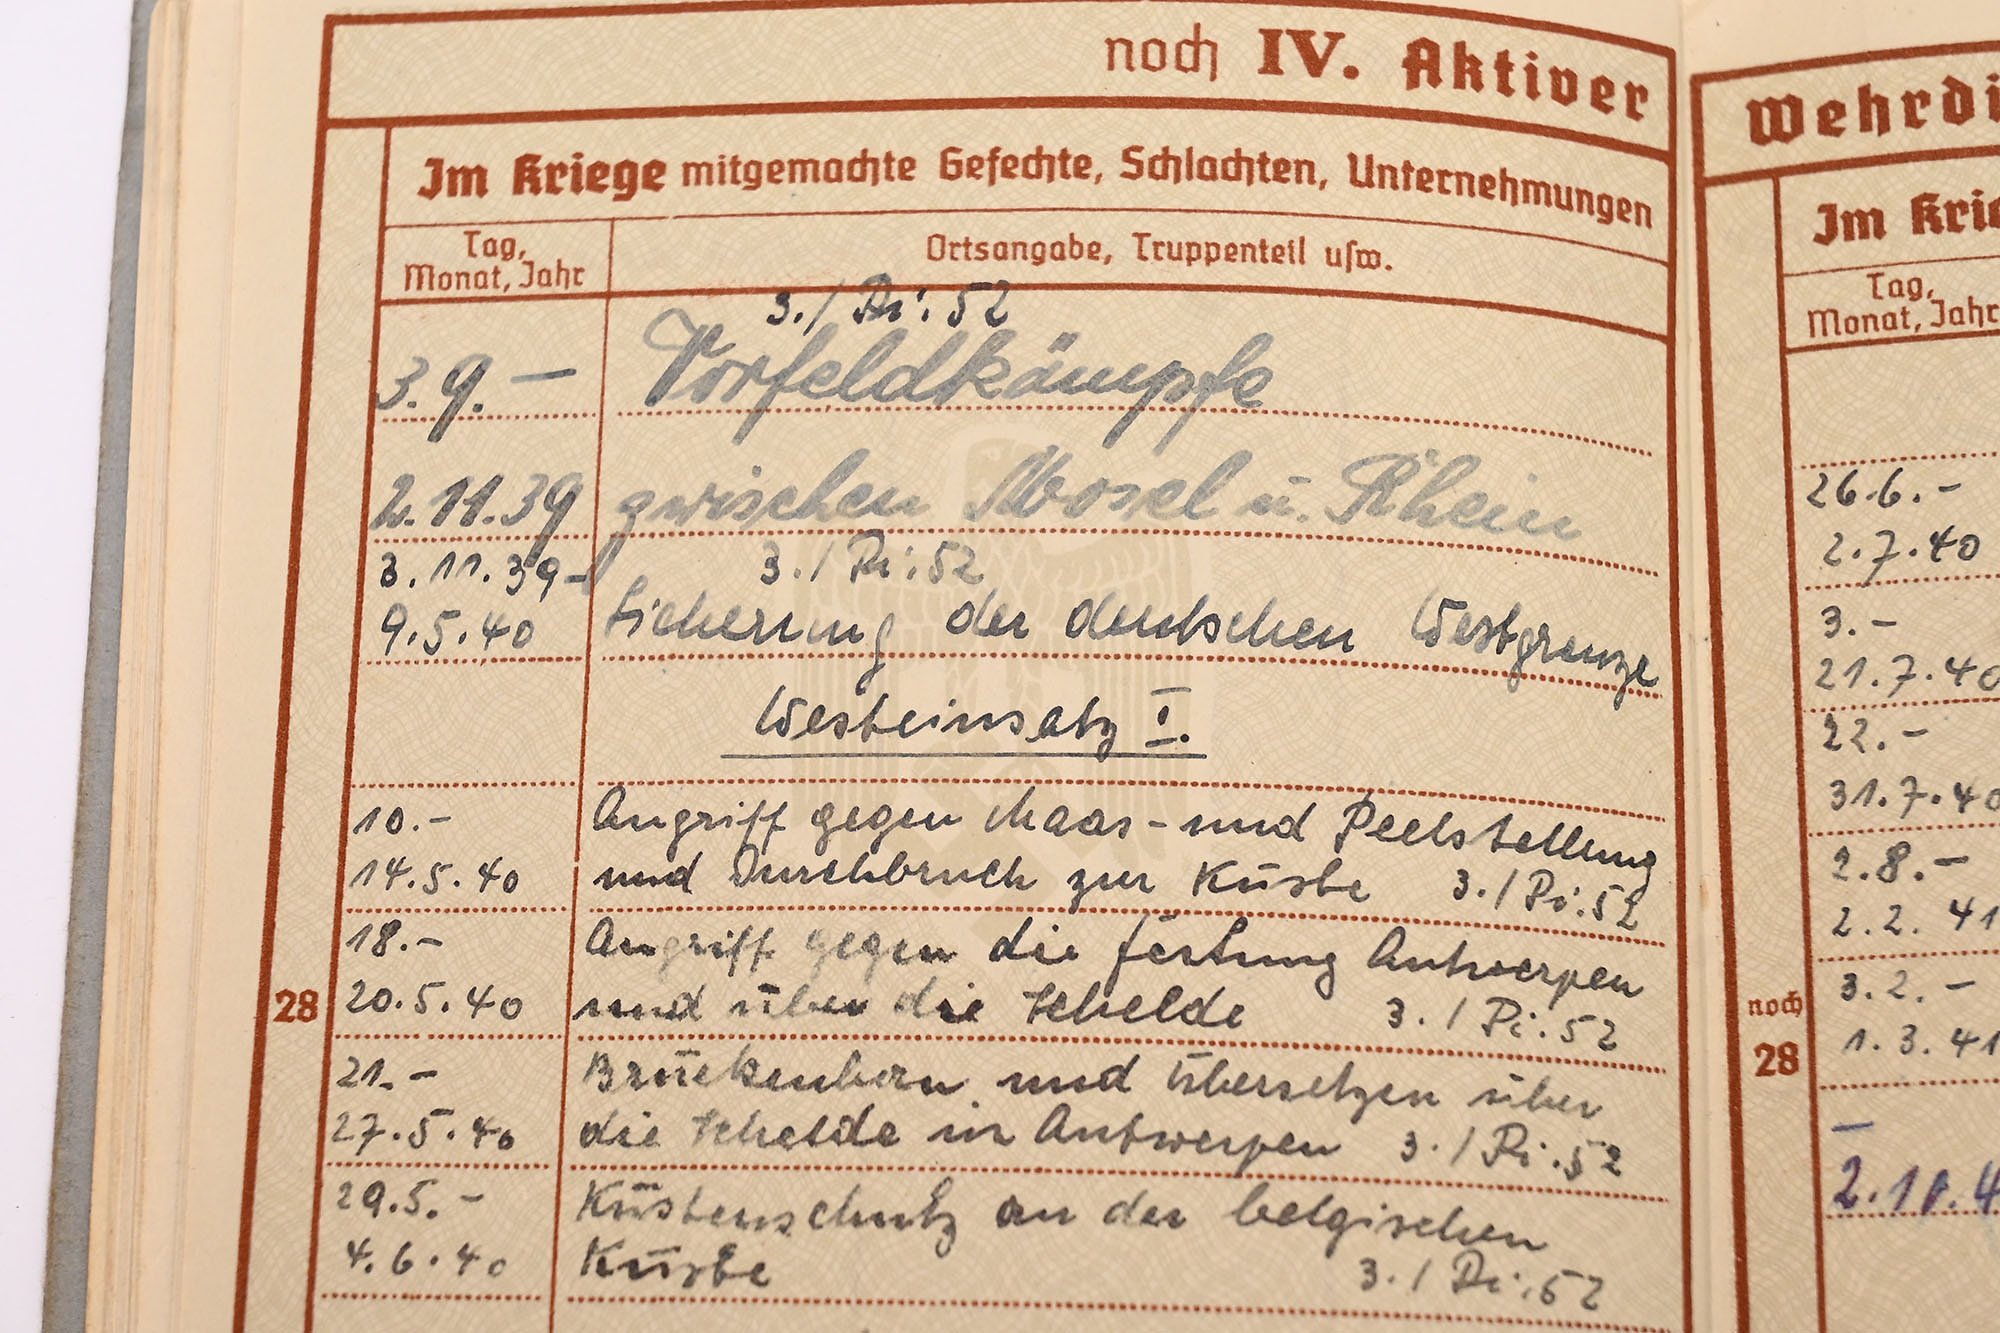 noch IV. Aktiver
Im Kriege mitgemachte Gefechte, Schlachten, Unternehmungen
Tag,
Monat, Jahr
Ortsangabe, Truppenteil usw.
3./Pi.: 52
3.9. – Vorfeldkämpfe
2.11.39 zwischen Mosel u. Rhein
3.11.39 – 3./Pi.: 52
9.5.40 Sicherung der deutschen Westgrenze
Westeinsatz I.
10. – Angriff gegen Maas- und Peelstellung
14.5.40 und Durchbruch zur Küste 3./Pi.: 52
18. – Angriff gegen die Festung Antwerpen
28 20.5.40 und über die Schelde 3./Pi.: 52
21. – Brückenbau und Übersetzen über
27.5.40 die Schelde in Antwerpen 3./Pi.: 52
29.5. – Küstenschutz an der belgischen
4.6.40 Küste 3./Pi.: 52
Wehrdi
Im Krie
Tag,
Monat, Jahr
26.6. –
2.7.40
3. –
21.7.40
22. –
31.7.40
2.8. –
2.2.41
3.2. –
noch
28
1.3.41
–
2.10.4